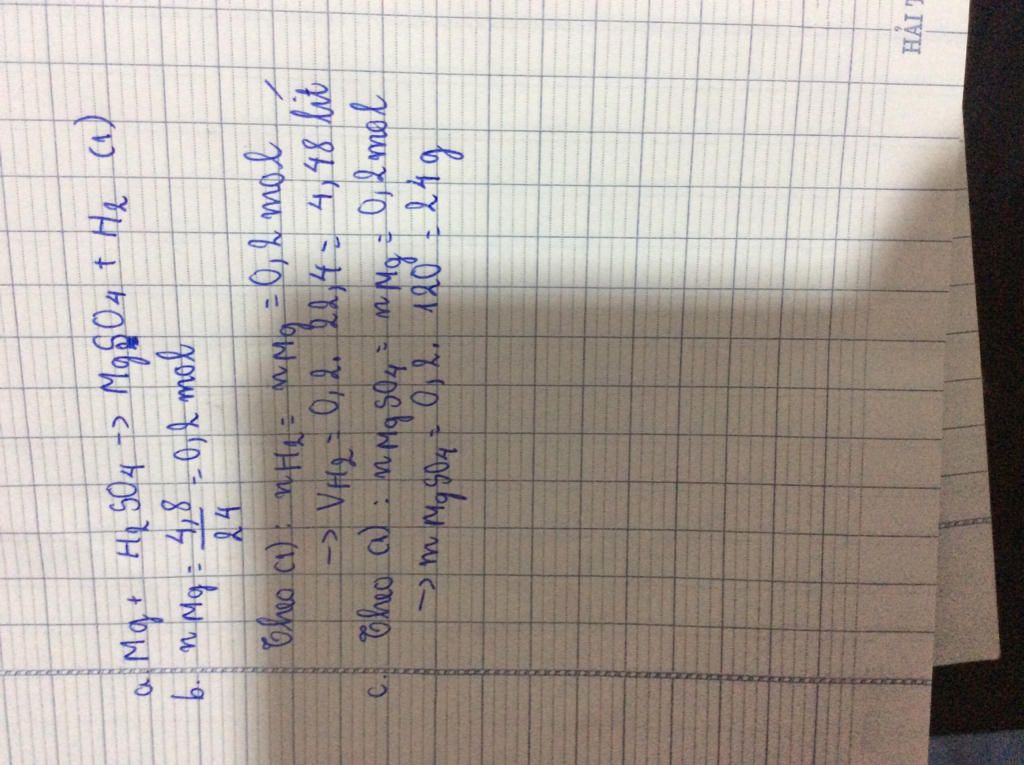 a. Mg + H2SO4 -> MgSO4 + H2 (1)
b. nMg = 4,8/24 = 0,2 mol
Theo (1) : nH2 = nMg = 0,2 mol
-> VH2 = 0,2. 22,4 = 4,48 lít
c. Theo (1) : nMgSO4 = nMg = 0,2 mol
-> mMgSO4 = 0,2. 120 = 24 g
HẢI